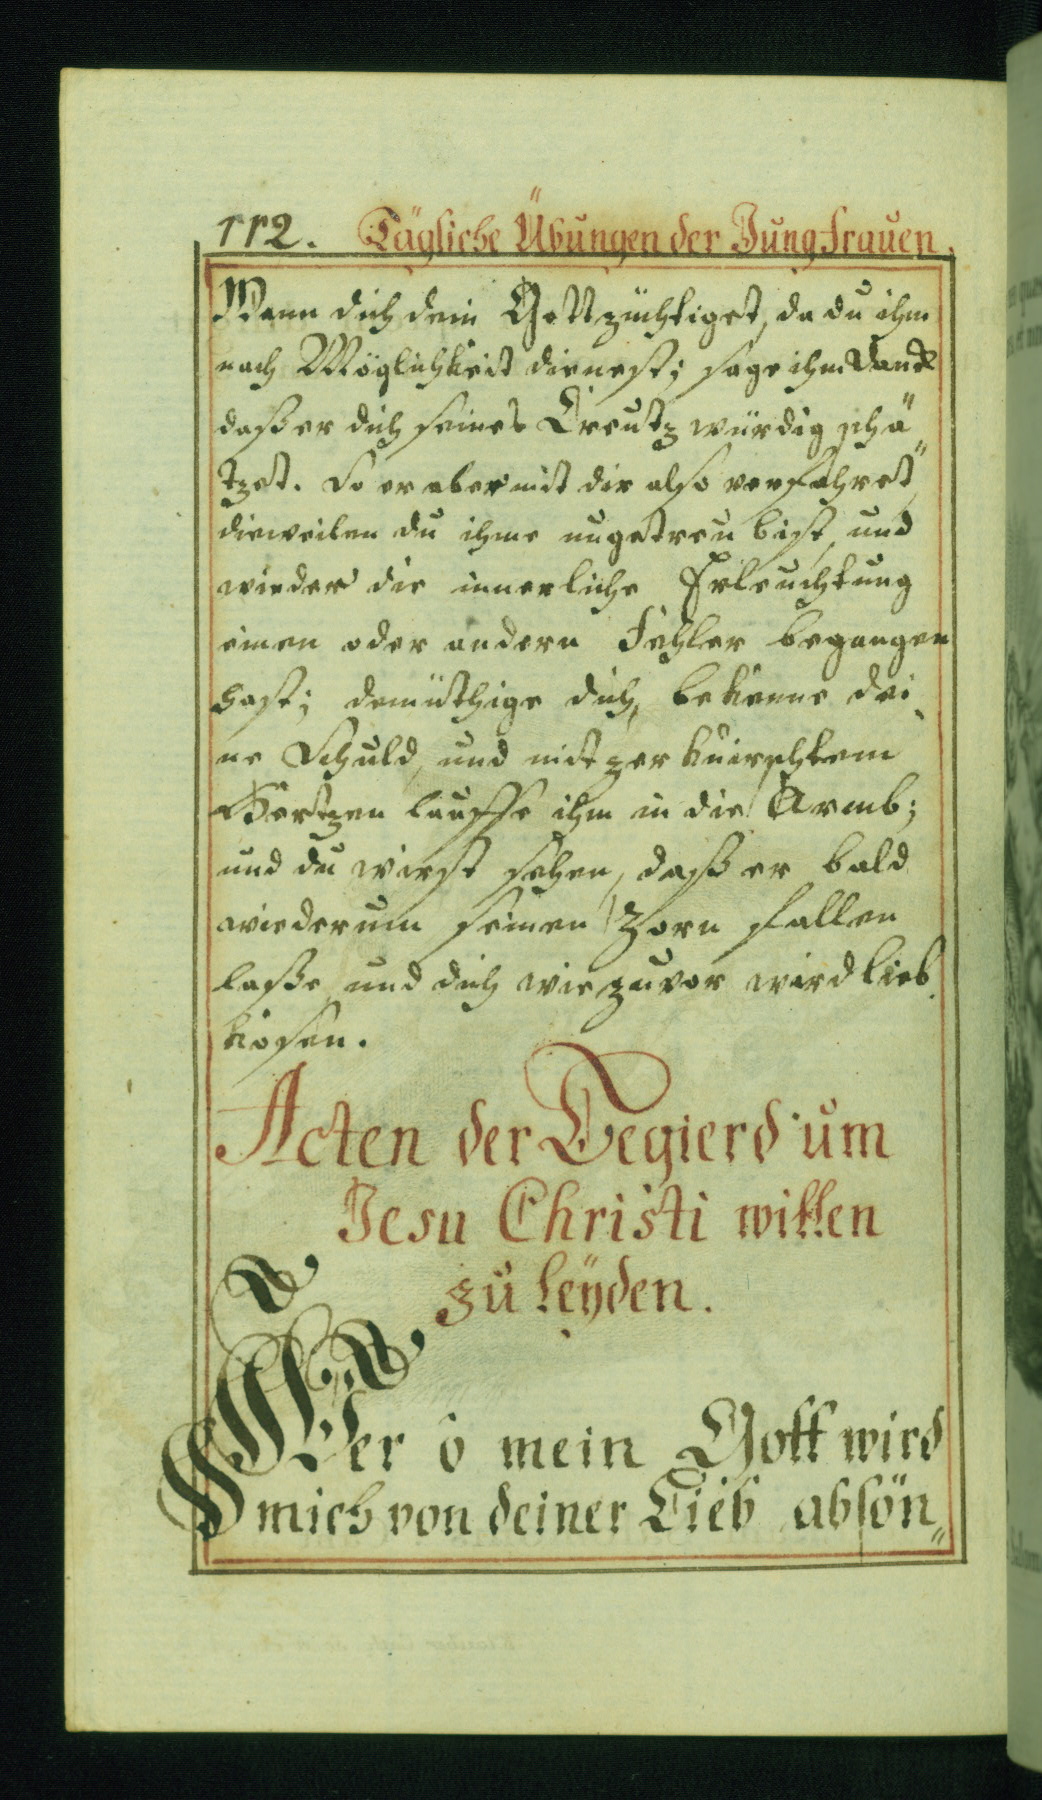 112. Tägliche Übungen der Jungfrauen.
Wann dich dein Gott züchtiget, da du ihm
nach Möglichkeit dienest; sage ihm Danck
daß er dich seines Creutz würdig schä„
tzet. So er aber mit dir also verfahret,
dieweilen du ihme ungetreu bist, und
wieder die innerliche Erleuchtung
einen oder andern Fehler begangen
hast; demüthige dich, bekenne dei„
ne Schuld, und mit zerknirschtem
Hertzen lauffe ihm in die Armb;
und du wirst sehen, daß er bald
wiederum seinen Zorn fallen
laße, und dich wie zuvor wird lieb„
kosen.
Acten der Begierd um
Jesu Christi willen
zu leÿden.
Wer ô mein Gott wird
mich von deiner Lieb absön„